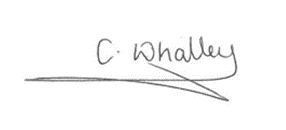 C. Whalley